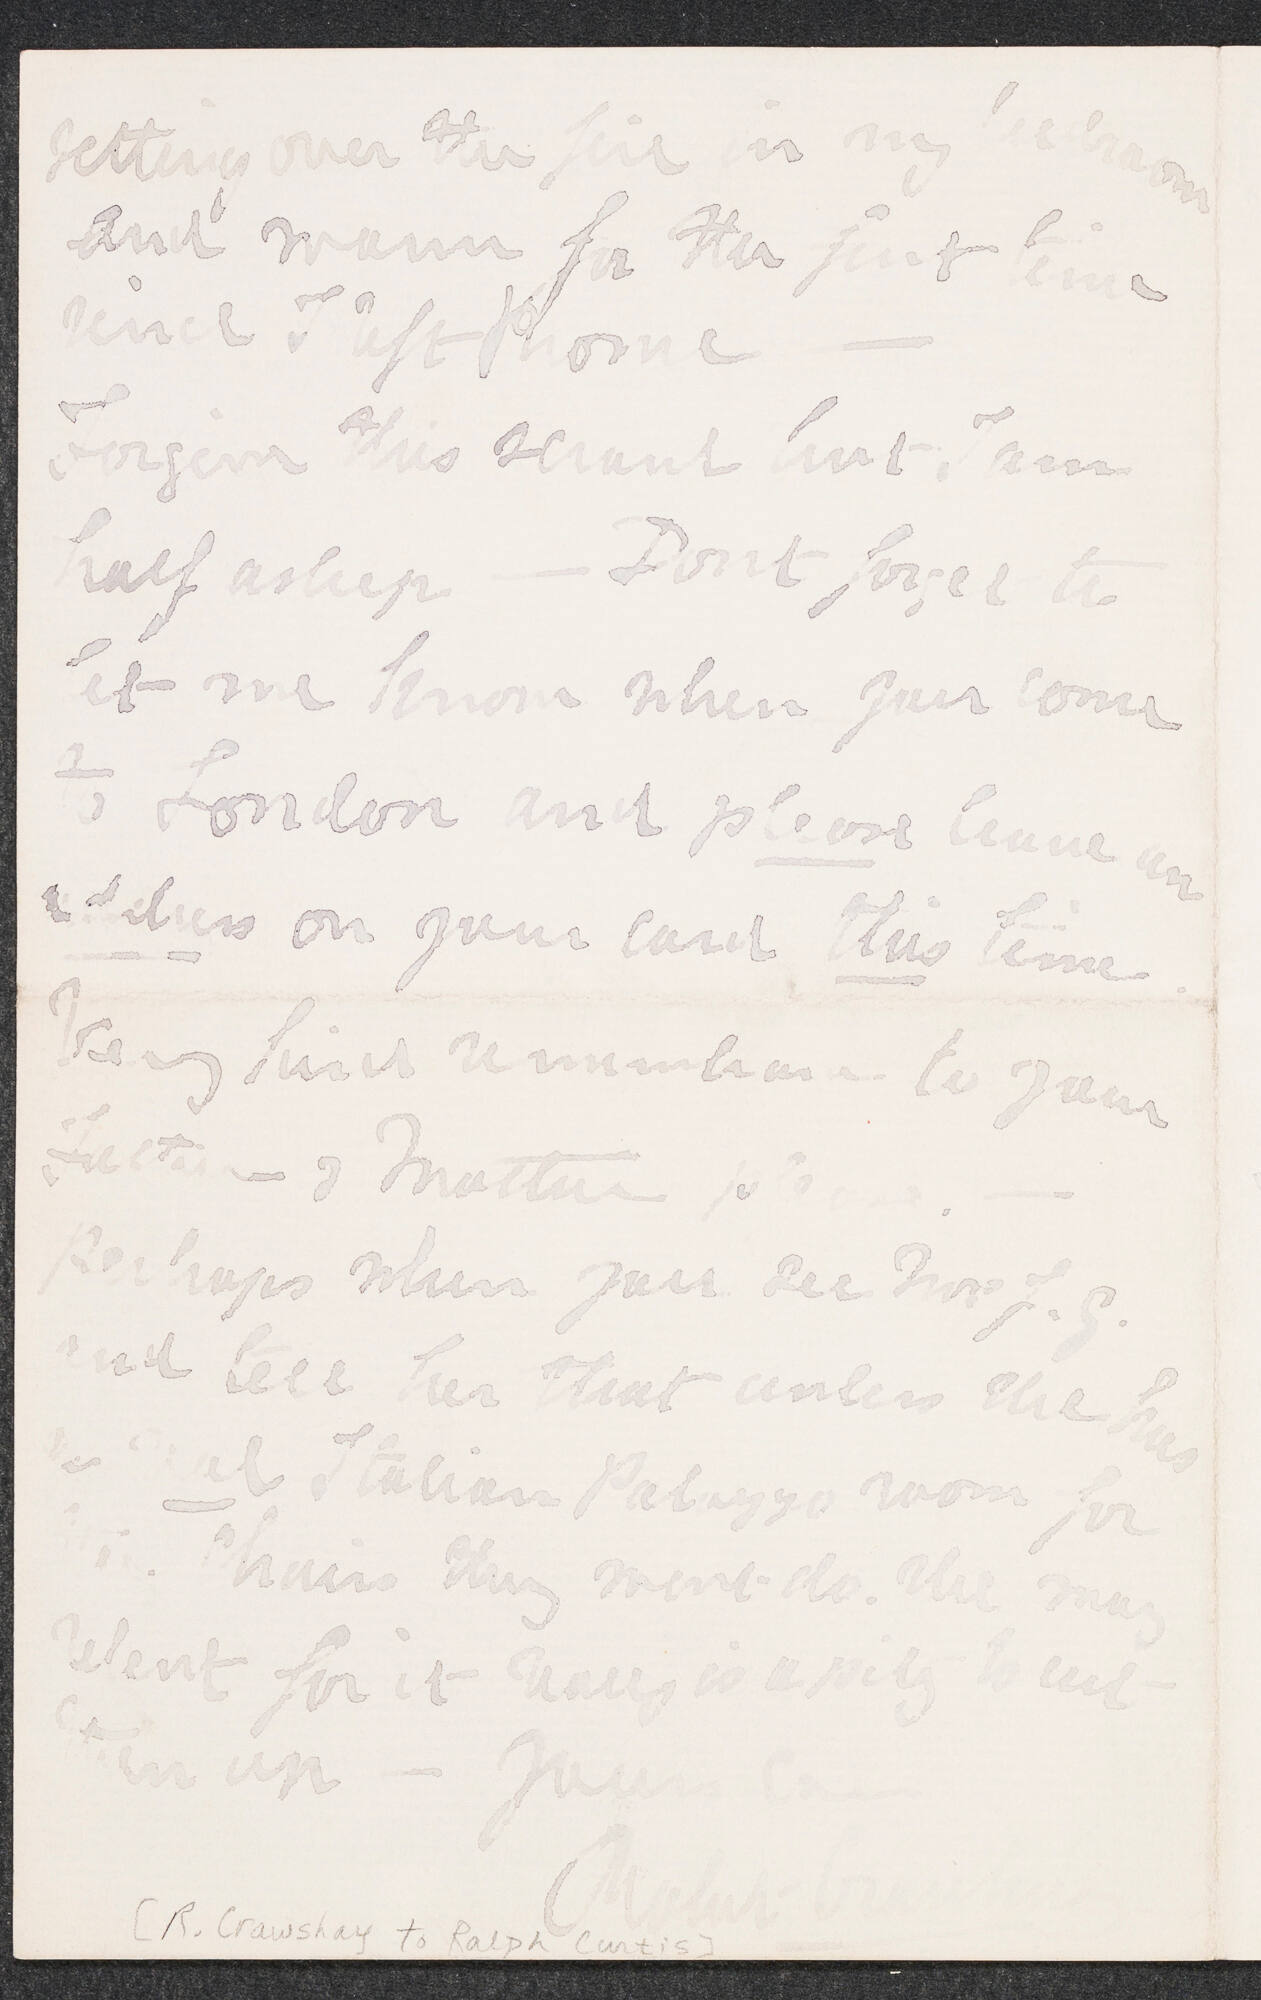 sitting over the fire in my bedroom
and warm for the first time
since I left home —
Forgive this scrawl but I am
half asleep — Dont forget to
let me know when you come
to London and please leave an
address on your card this time.
Very kind remembrance to your
Father & Mother please. —
Perhaps when you see Mrs J. G.
and tell her that unless she has
a real Italian Palazzo room for
chairs they wont do. She may
send for it is a pity to cut
up — Yours
Robert Crawshay
[R. Crawshay to Ralph Curtis]